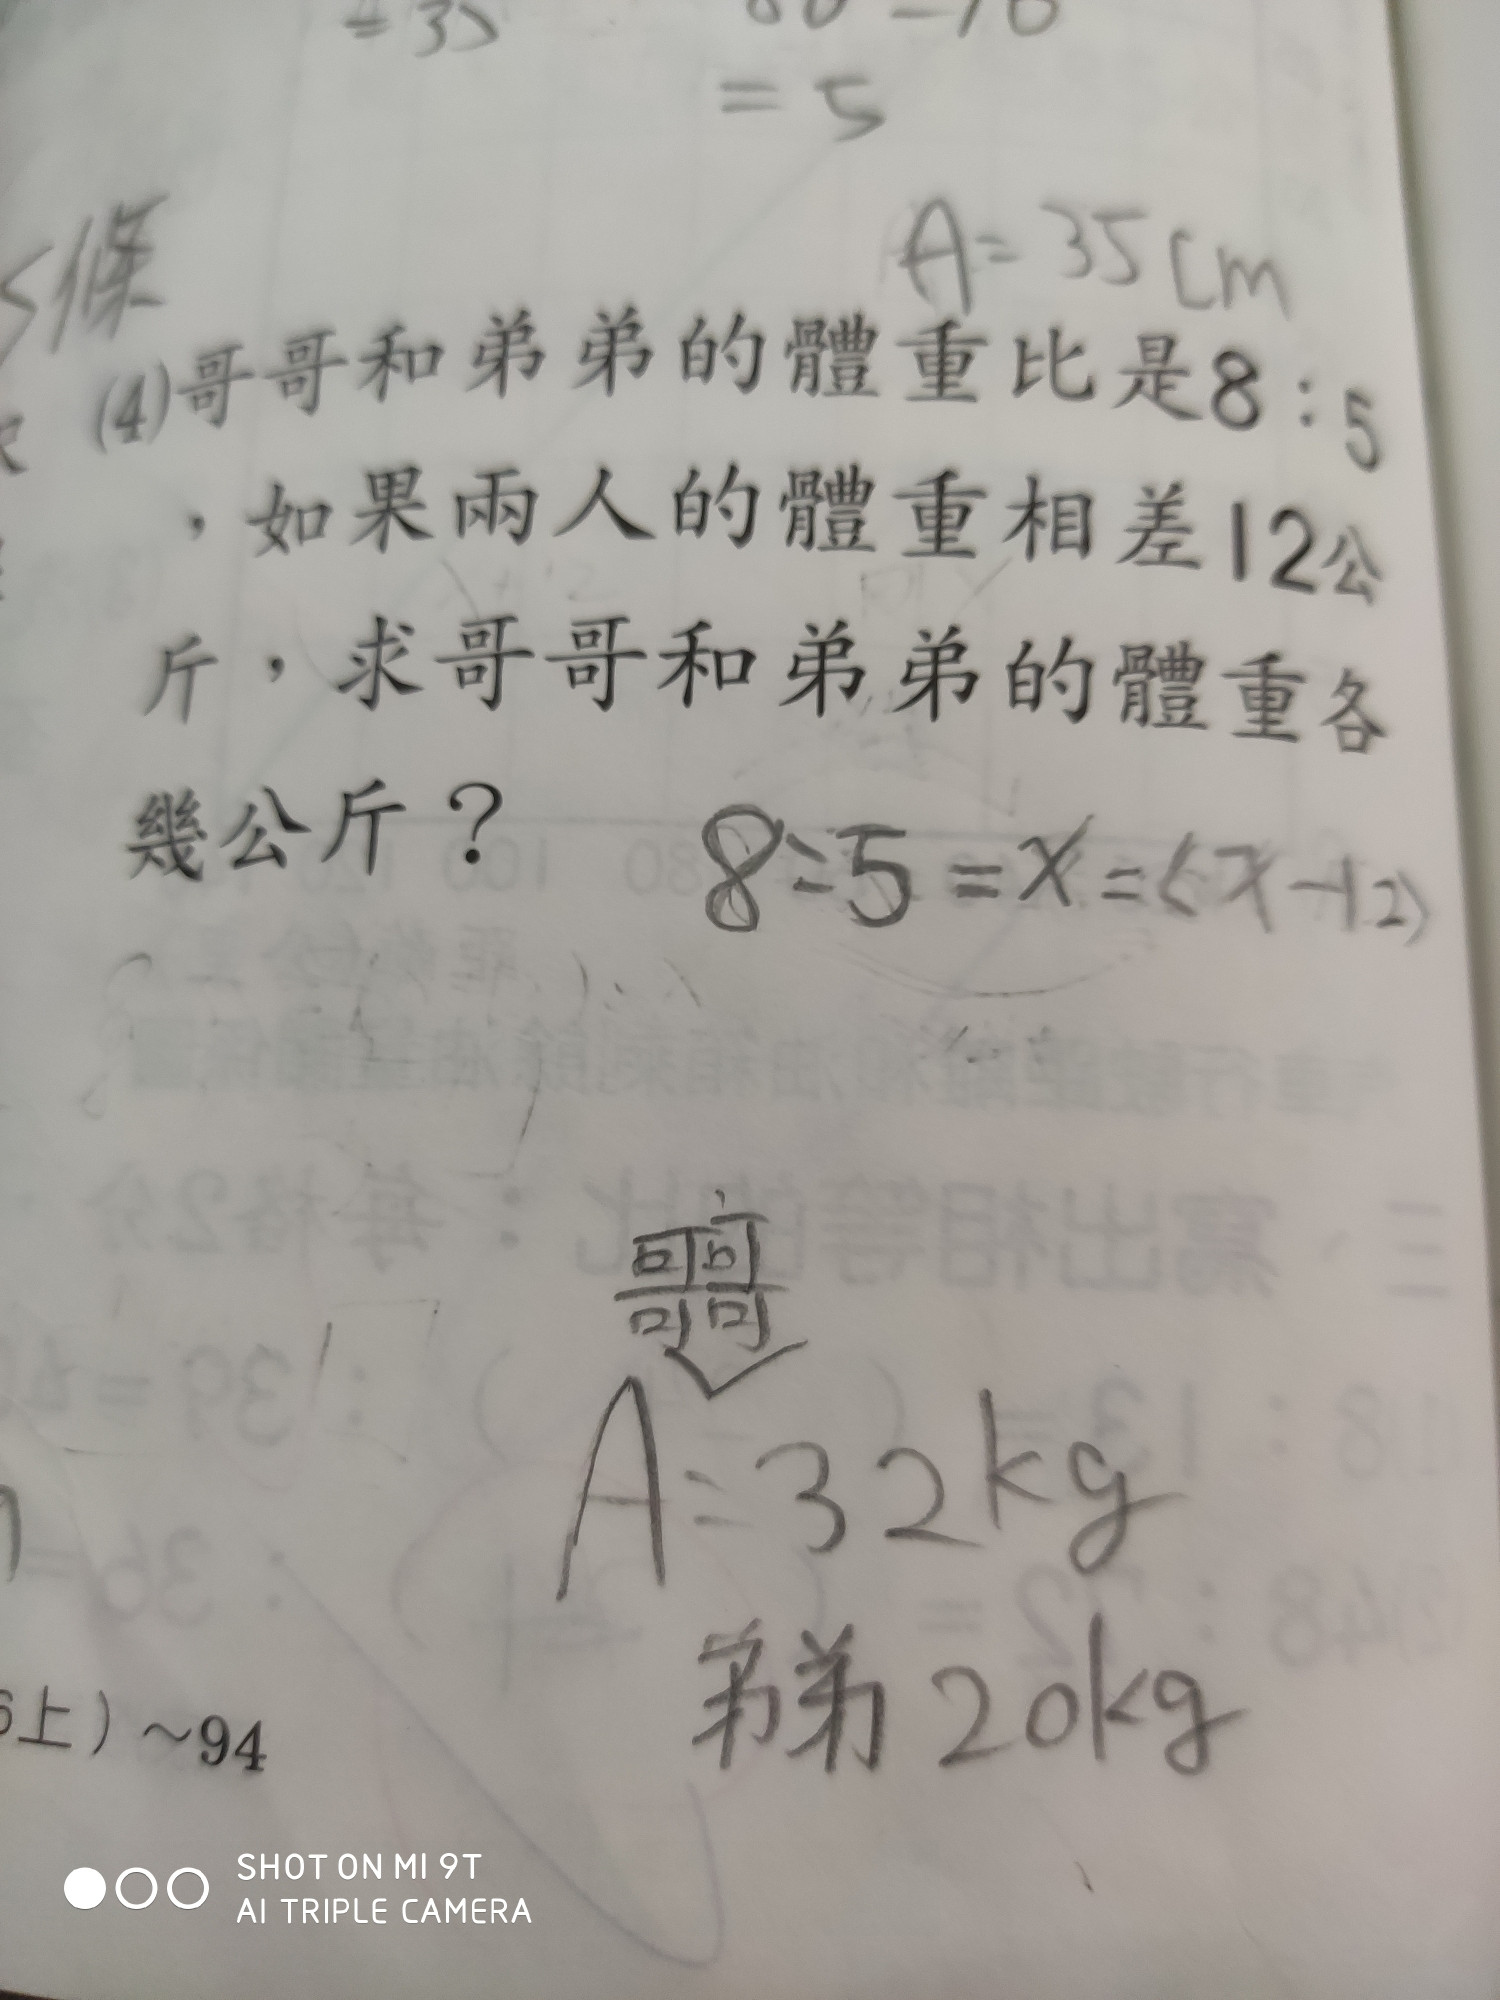 = 35
= 5
A = 35cm
5條
(4)哥哥和弟弟的體重比是8:5
，如果兩人的體重相差12公
斤，求哥哥和弟弟的體重各
幾公斤？
8÷5=x=(x-12)
哥哥
A=32kg
弟弟20kg
6上）~94
SHOT ON MI 9T
AI TRIPLE CAMERA